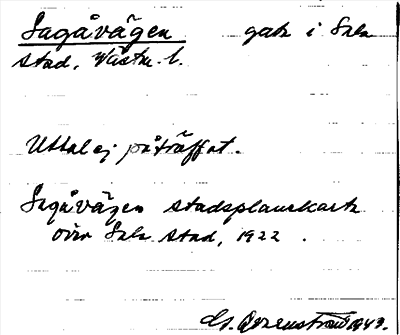 Sagåvägen gata i Sala
stad, Västm. l.
Uttal ej påträffat.
Sagåvägen stadsplanekarta
över Sala stad, 1922.
1943.